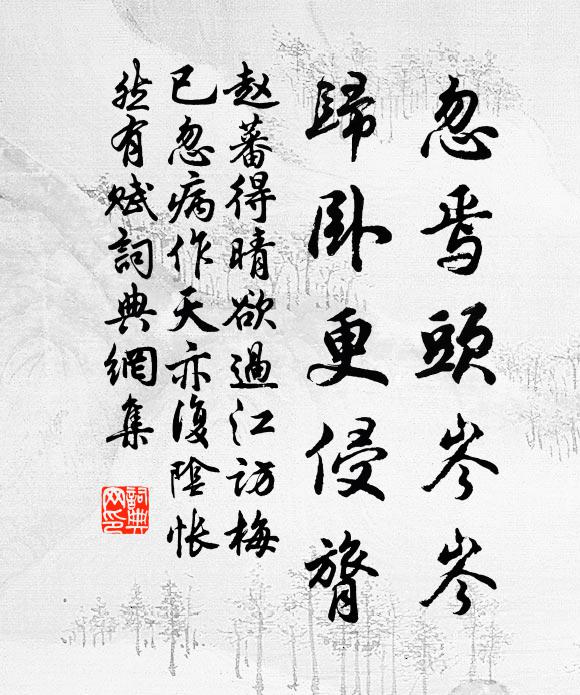 忽焉頭岑岑
歸卧更侵膂
赵蕃得晴欲過江訪梅
已忽病作天亦復陰悵
然有赋詞典網集
詞典网印